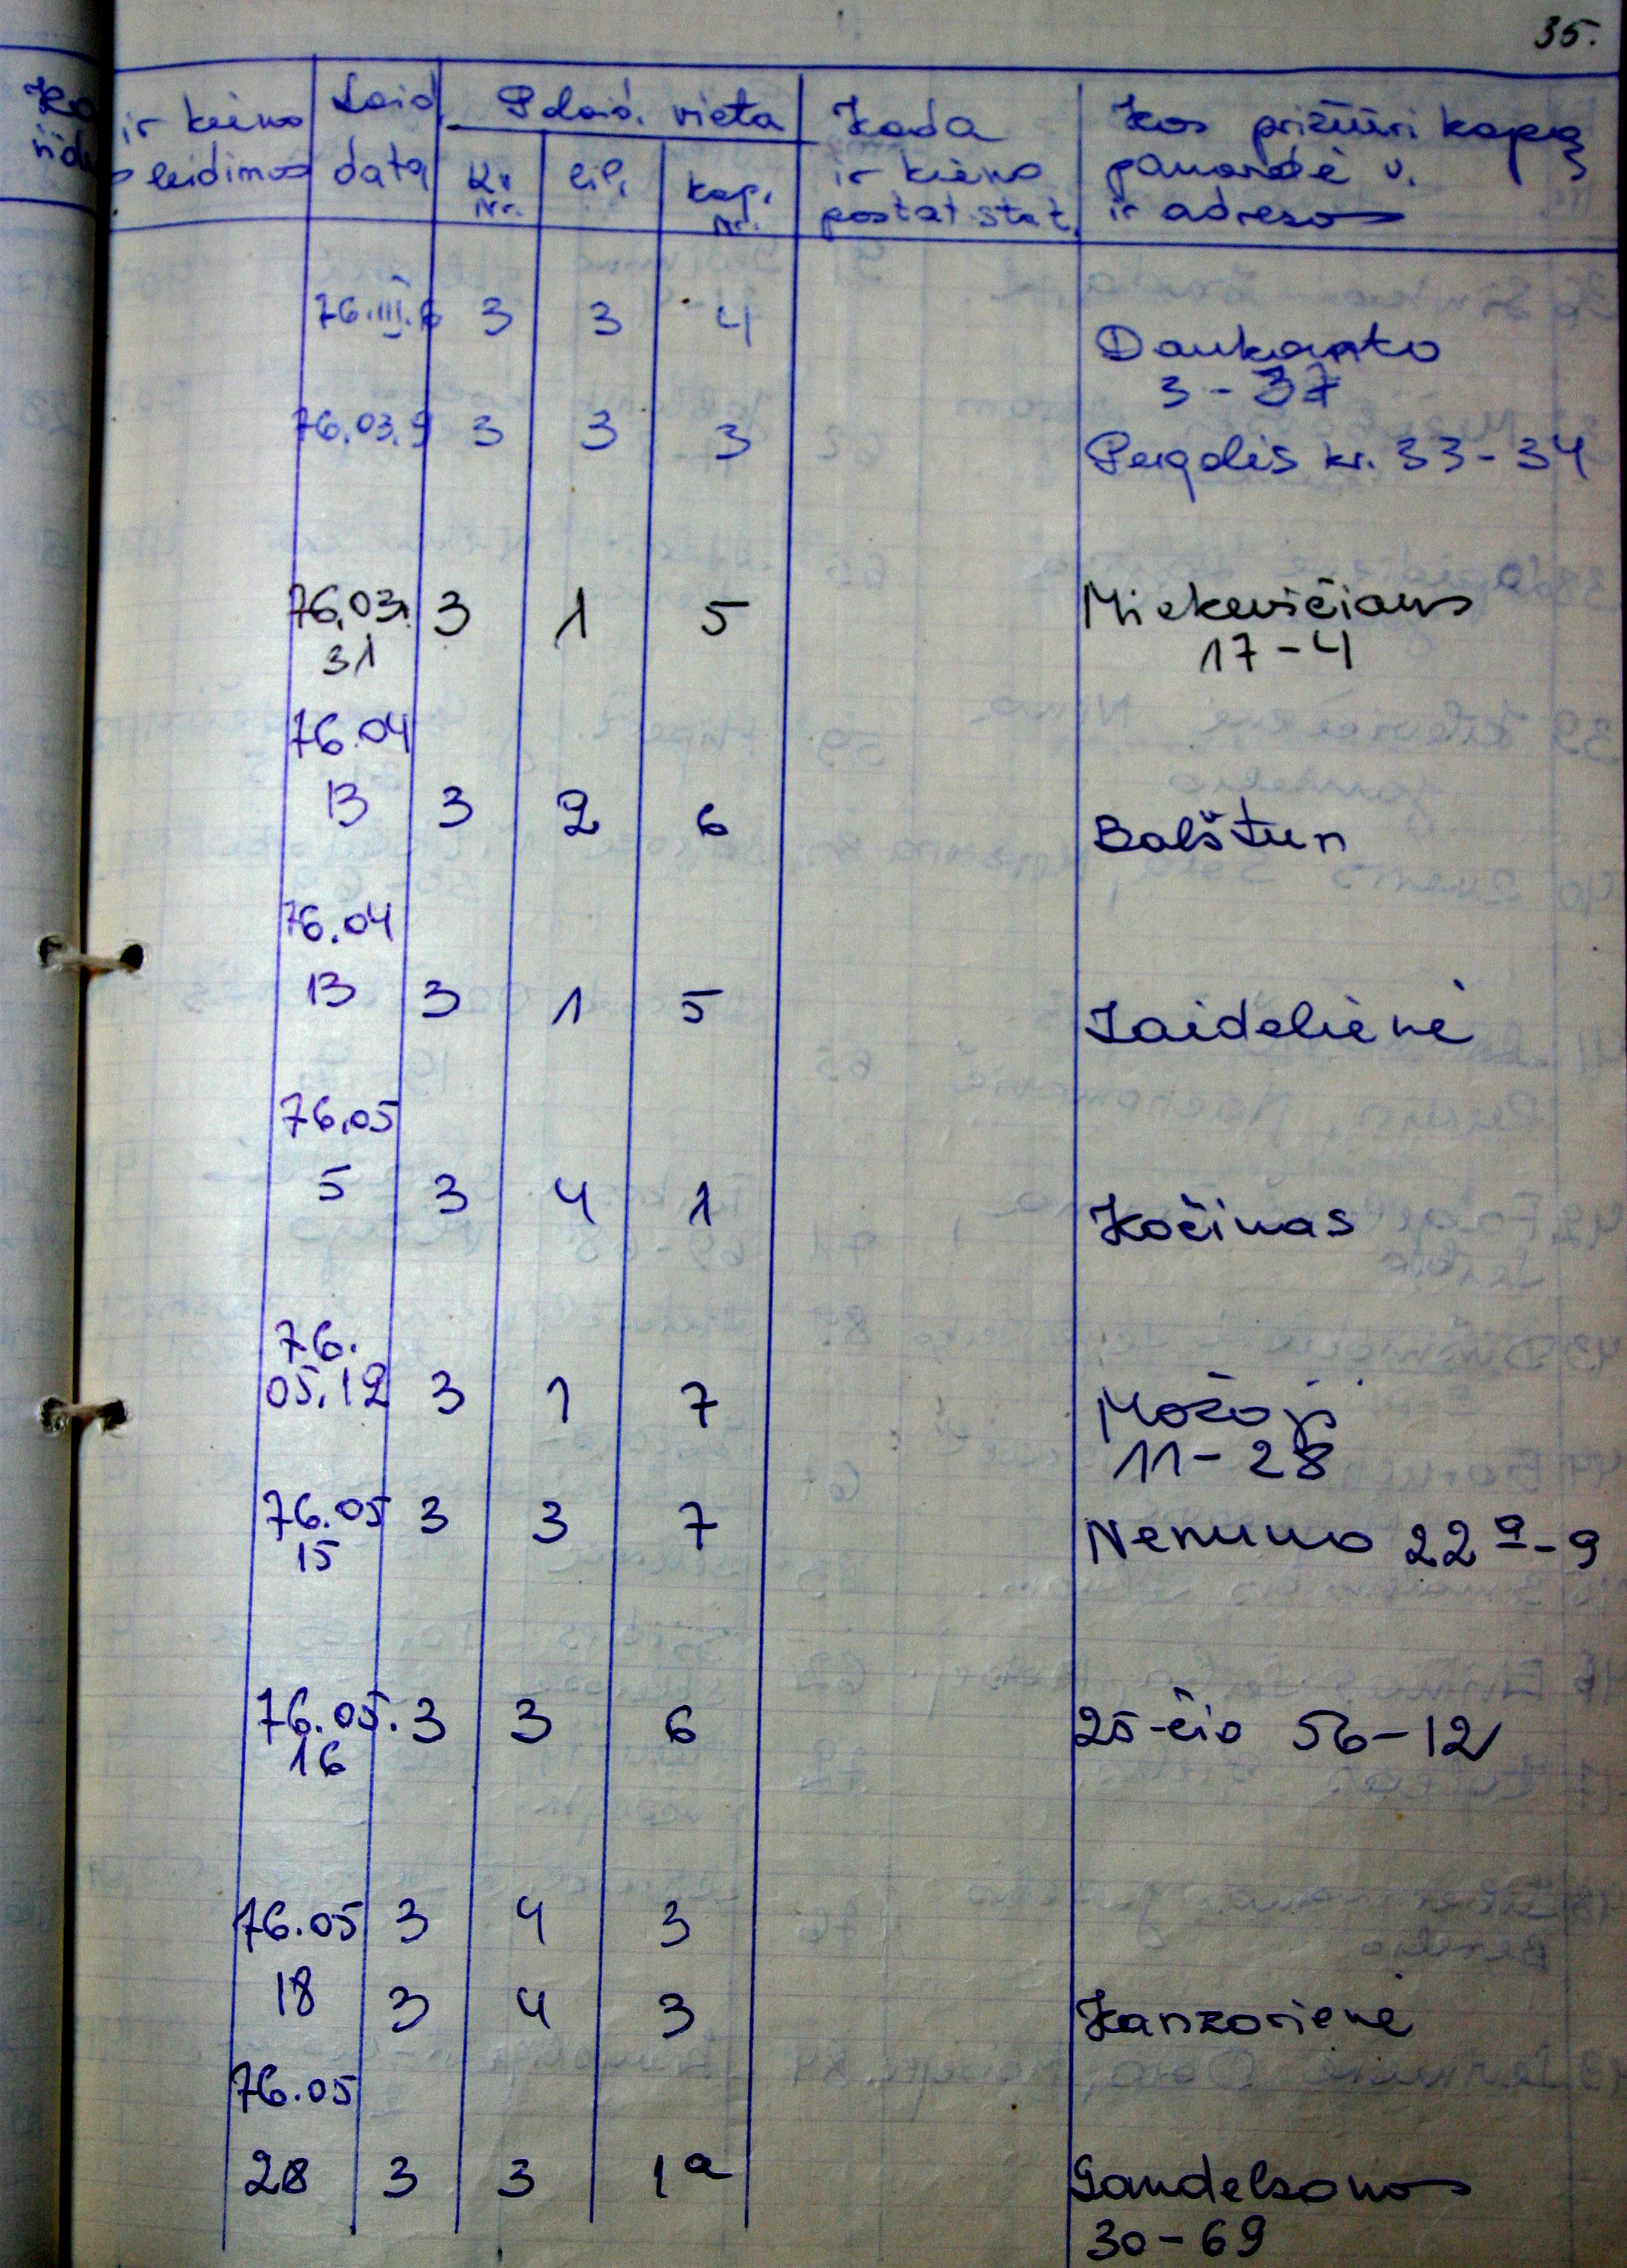 35.
ir kieno
leidimas
Laid
data
Palaid. vieta
Kv
Nr.
eil.
kap.
Nr.
Kada
ir kieno
pastat. stat.
Kas prižiūri kapą
pavardė v.
ir adresas
76.III.8 3 3 4
Daukanto
3-37
76.03.9 3 3 3 Pergalės kr. 33-34
76.03. 3 1 5 Mickevičiaus
31 17-4
76.04
13 3 2 6 Balštun
76.04
13 3 1 5 Zaidelienė
76.05
5 3 4 1 Kočinas
76.
05.12 3 1 7 Mažoji
11-28
76.05 3 3 7 Nemuno 22a-9
15
76.05. 3 3 6 25-čio 56-12
16
76.05 3 4 3
18 3 4 3 Kanzorienė
76.05
28 3 3 1a Gandelsonas
30-69